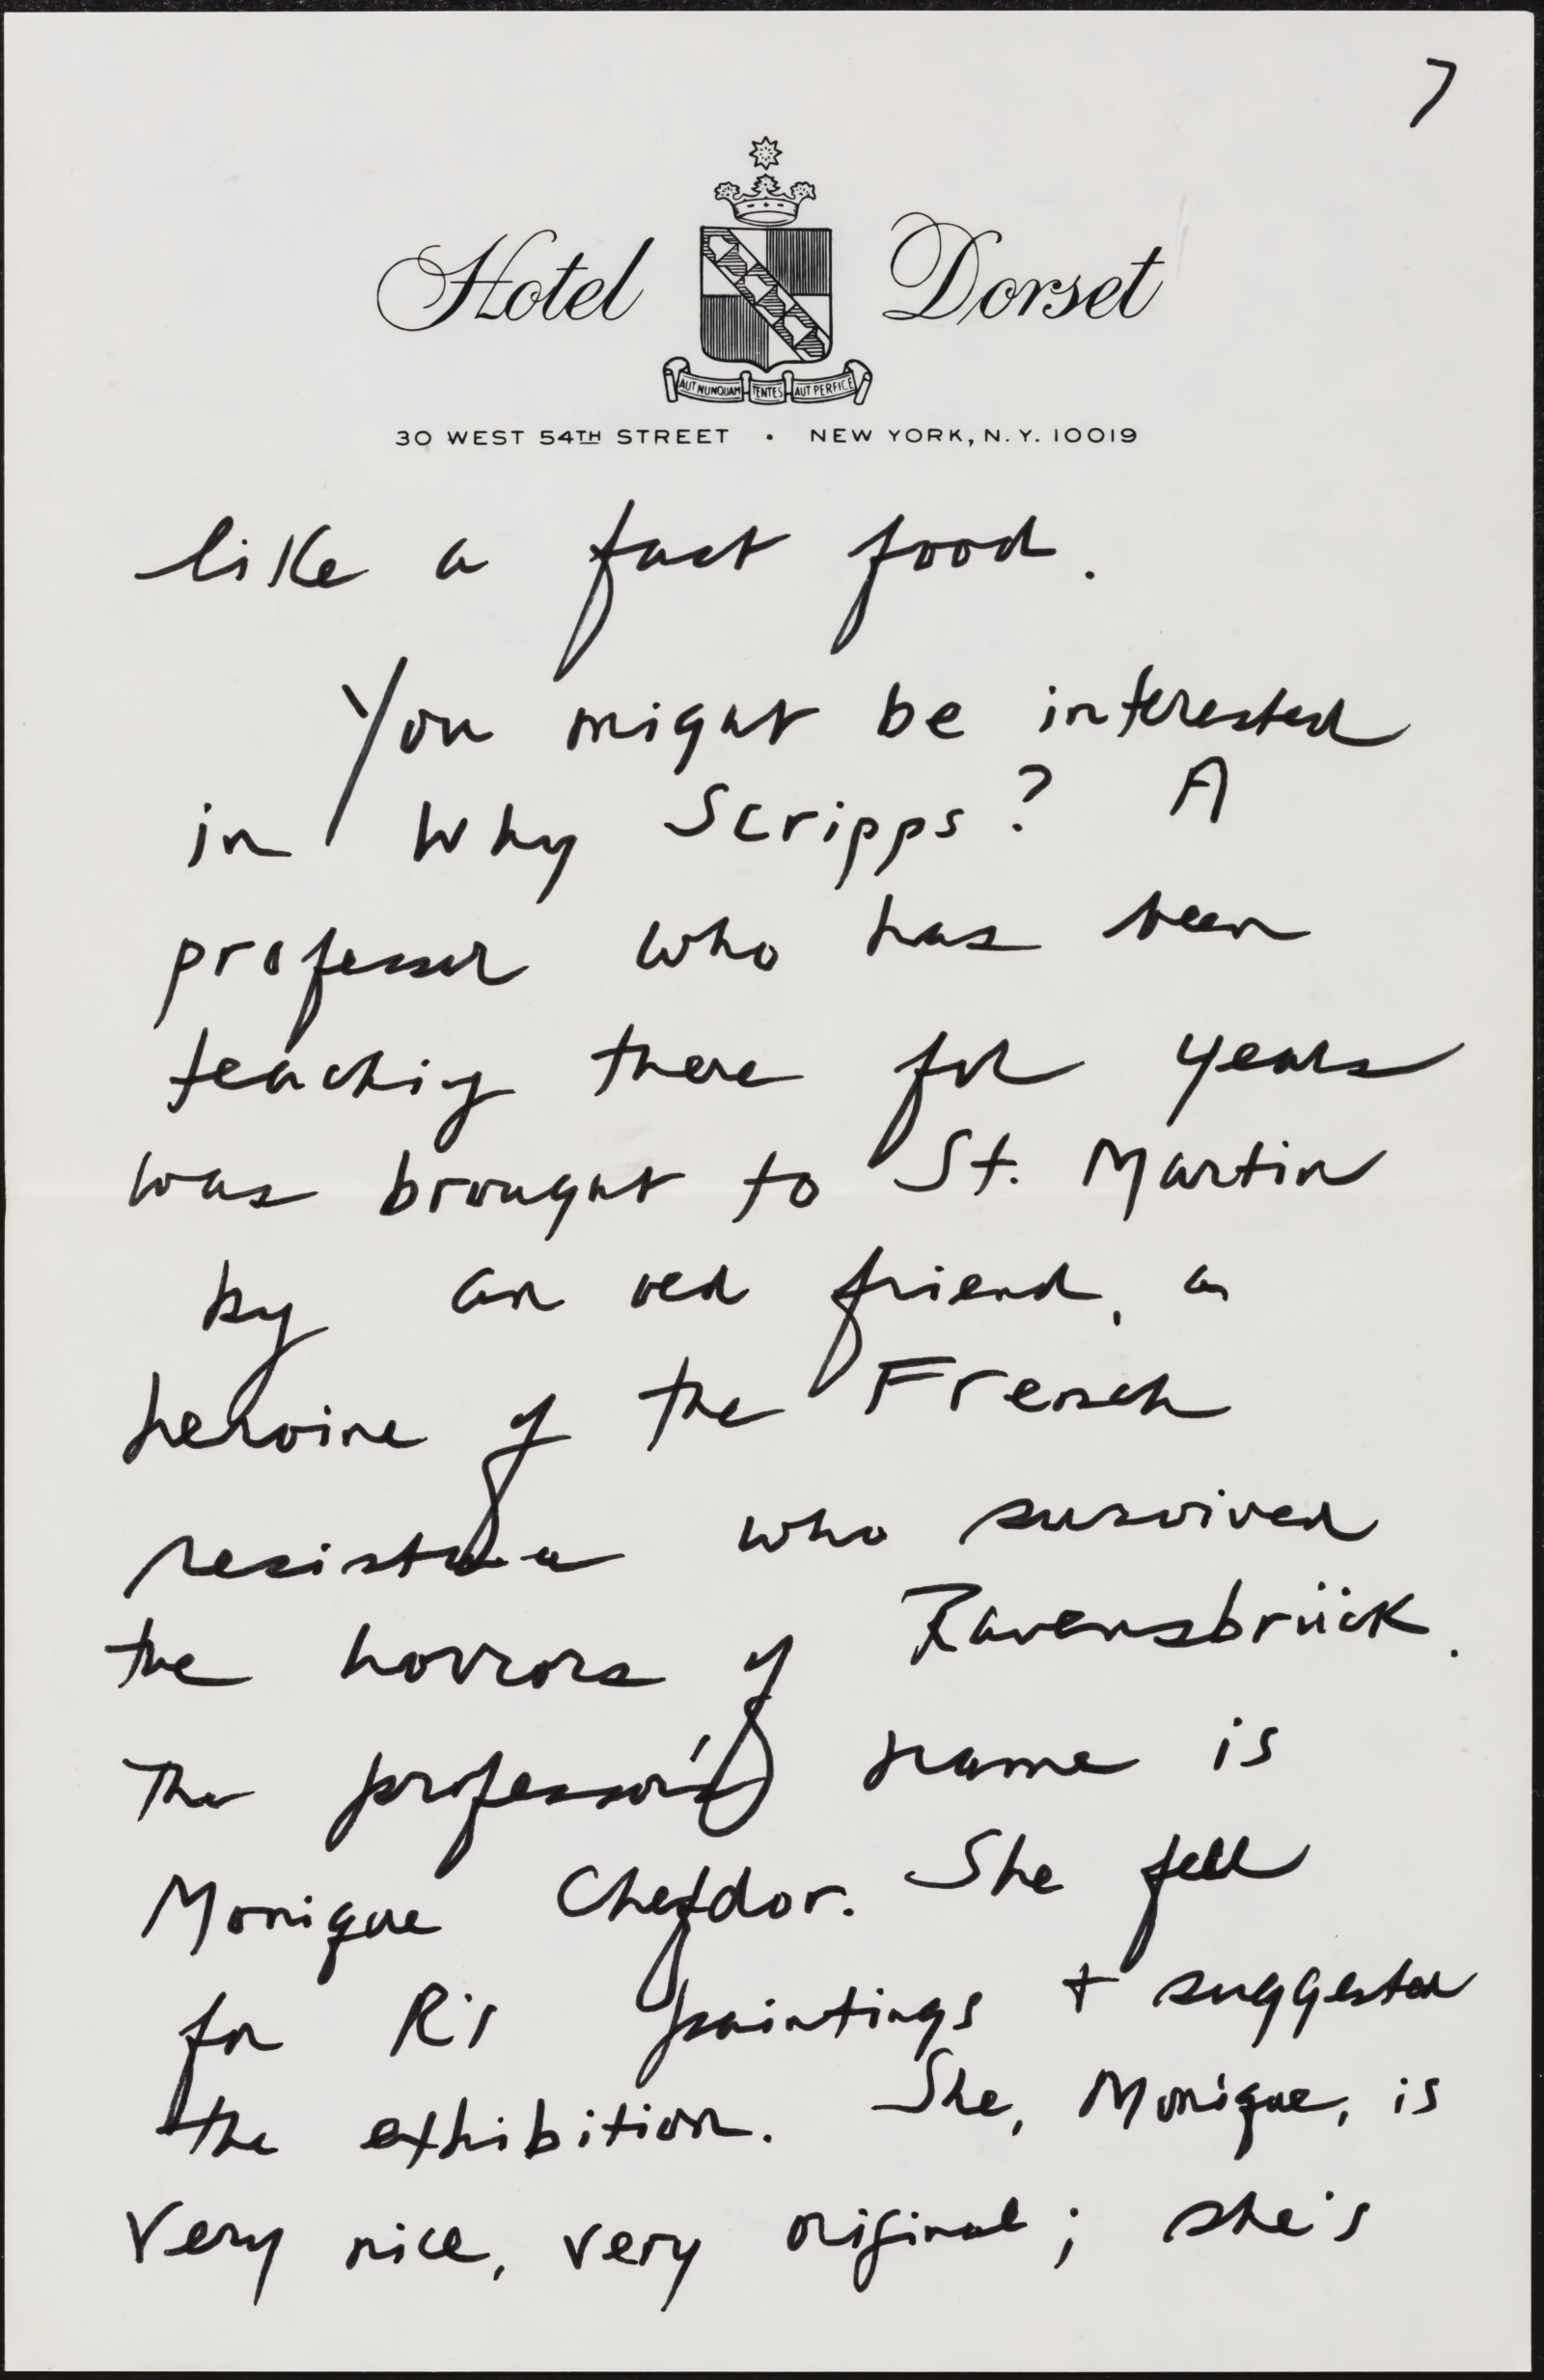 7
Hotel Dorset
AUT NUNQUAM TENTES AUT PERFICE
30 WEST 54TH STREET • NEW YORK, N.Y. 10019
like a fast food.
You might be interested
in Why Scripps? A
professor who has been
teaching there for years
was brought to St. Martin
by an old friend, a
heroine of the French
resistance who survived
the horrors of Ravensbrück.
The professor's name is
Monique Chefdor. She fell
for R's paintings + suggested
the exhibition. She, Monique, is
very nice, very original; she's